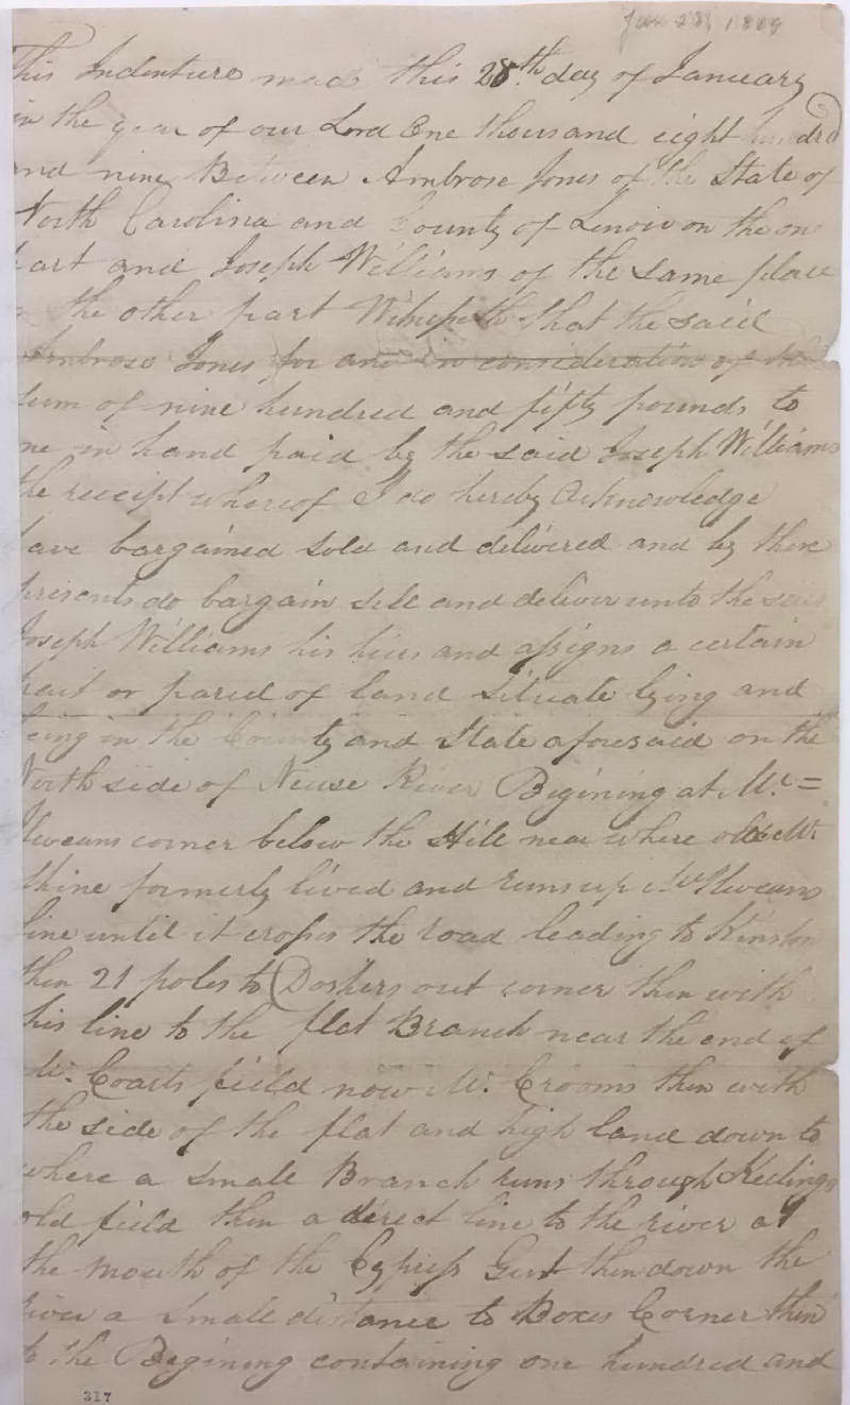 Jan 28, 1809
This Indenture made this 28th day of January
in the year of our Lord One thousand eight hundred
and nine Between Ambrose Jones of the State of
North Carolina and County of Lenoir on the one
part and Joseph Williams of the same place
the other part Witnesseth that the said
Ambrose Jones for and in consideration of the
sum of nine hundred and fifty pounds to
me in hand paid by the said Joseph Williams
the receipt whereof I do hereby Acknowledge
have bargained sold and delivered and by these
presents do bargain sell and deliver unto the said
Joseph Williams his hiers and assigns a certain
trait or parcel of land situate lying and
being in the County and State aforesaid on the
North side of Neuse River Begining at Mc=
Ilweans corner below the Hill near where old Mr.
thine formerly lived and runs up McIlweans
line until it crosses the road leading to Kinston
then 21 poles to Doshers out corner then with
his line to the flat Branch near the end of
Mr. Coarts field now Mr. Crooms then with
the side of the flat and high land down to
where a small Branch runs through Keelings
old field then a direct line to the river at
the mouth of the Cypress Gut then down the
river a small distance to Boxes Corner then
to the Begining containing one hundred and
317